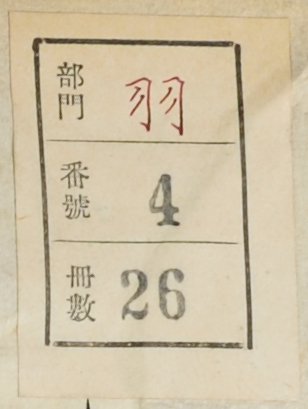 部門 羽
番號 4
冊數 26